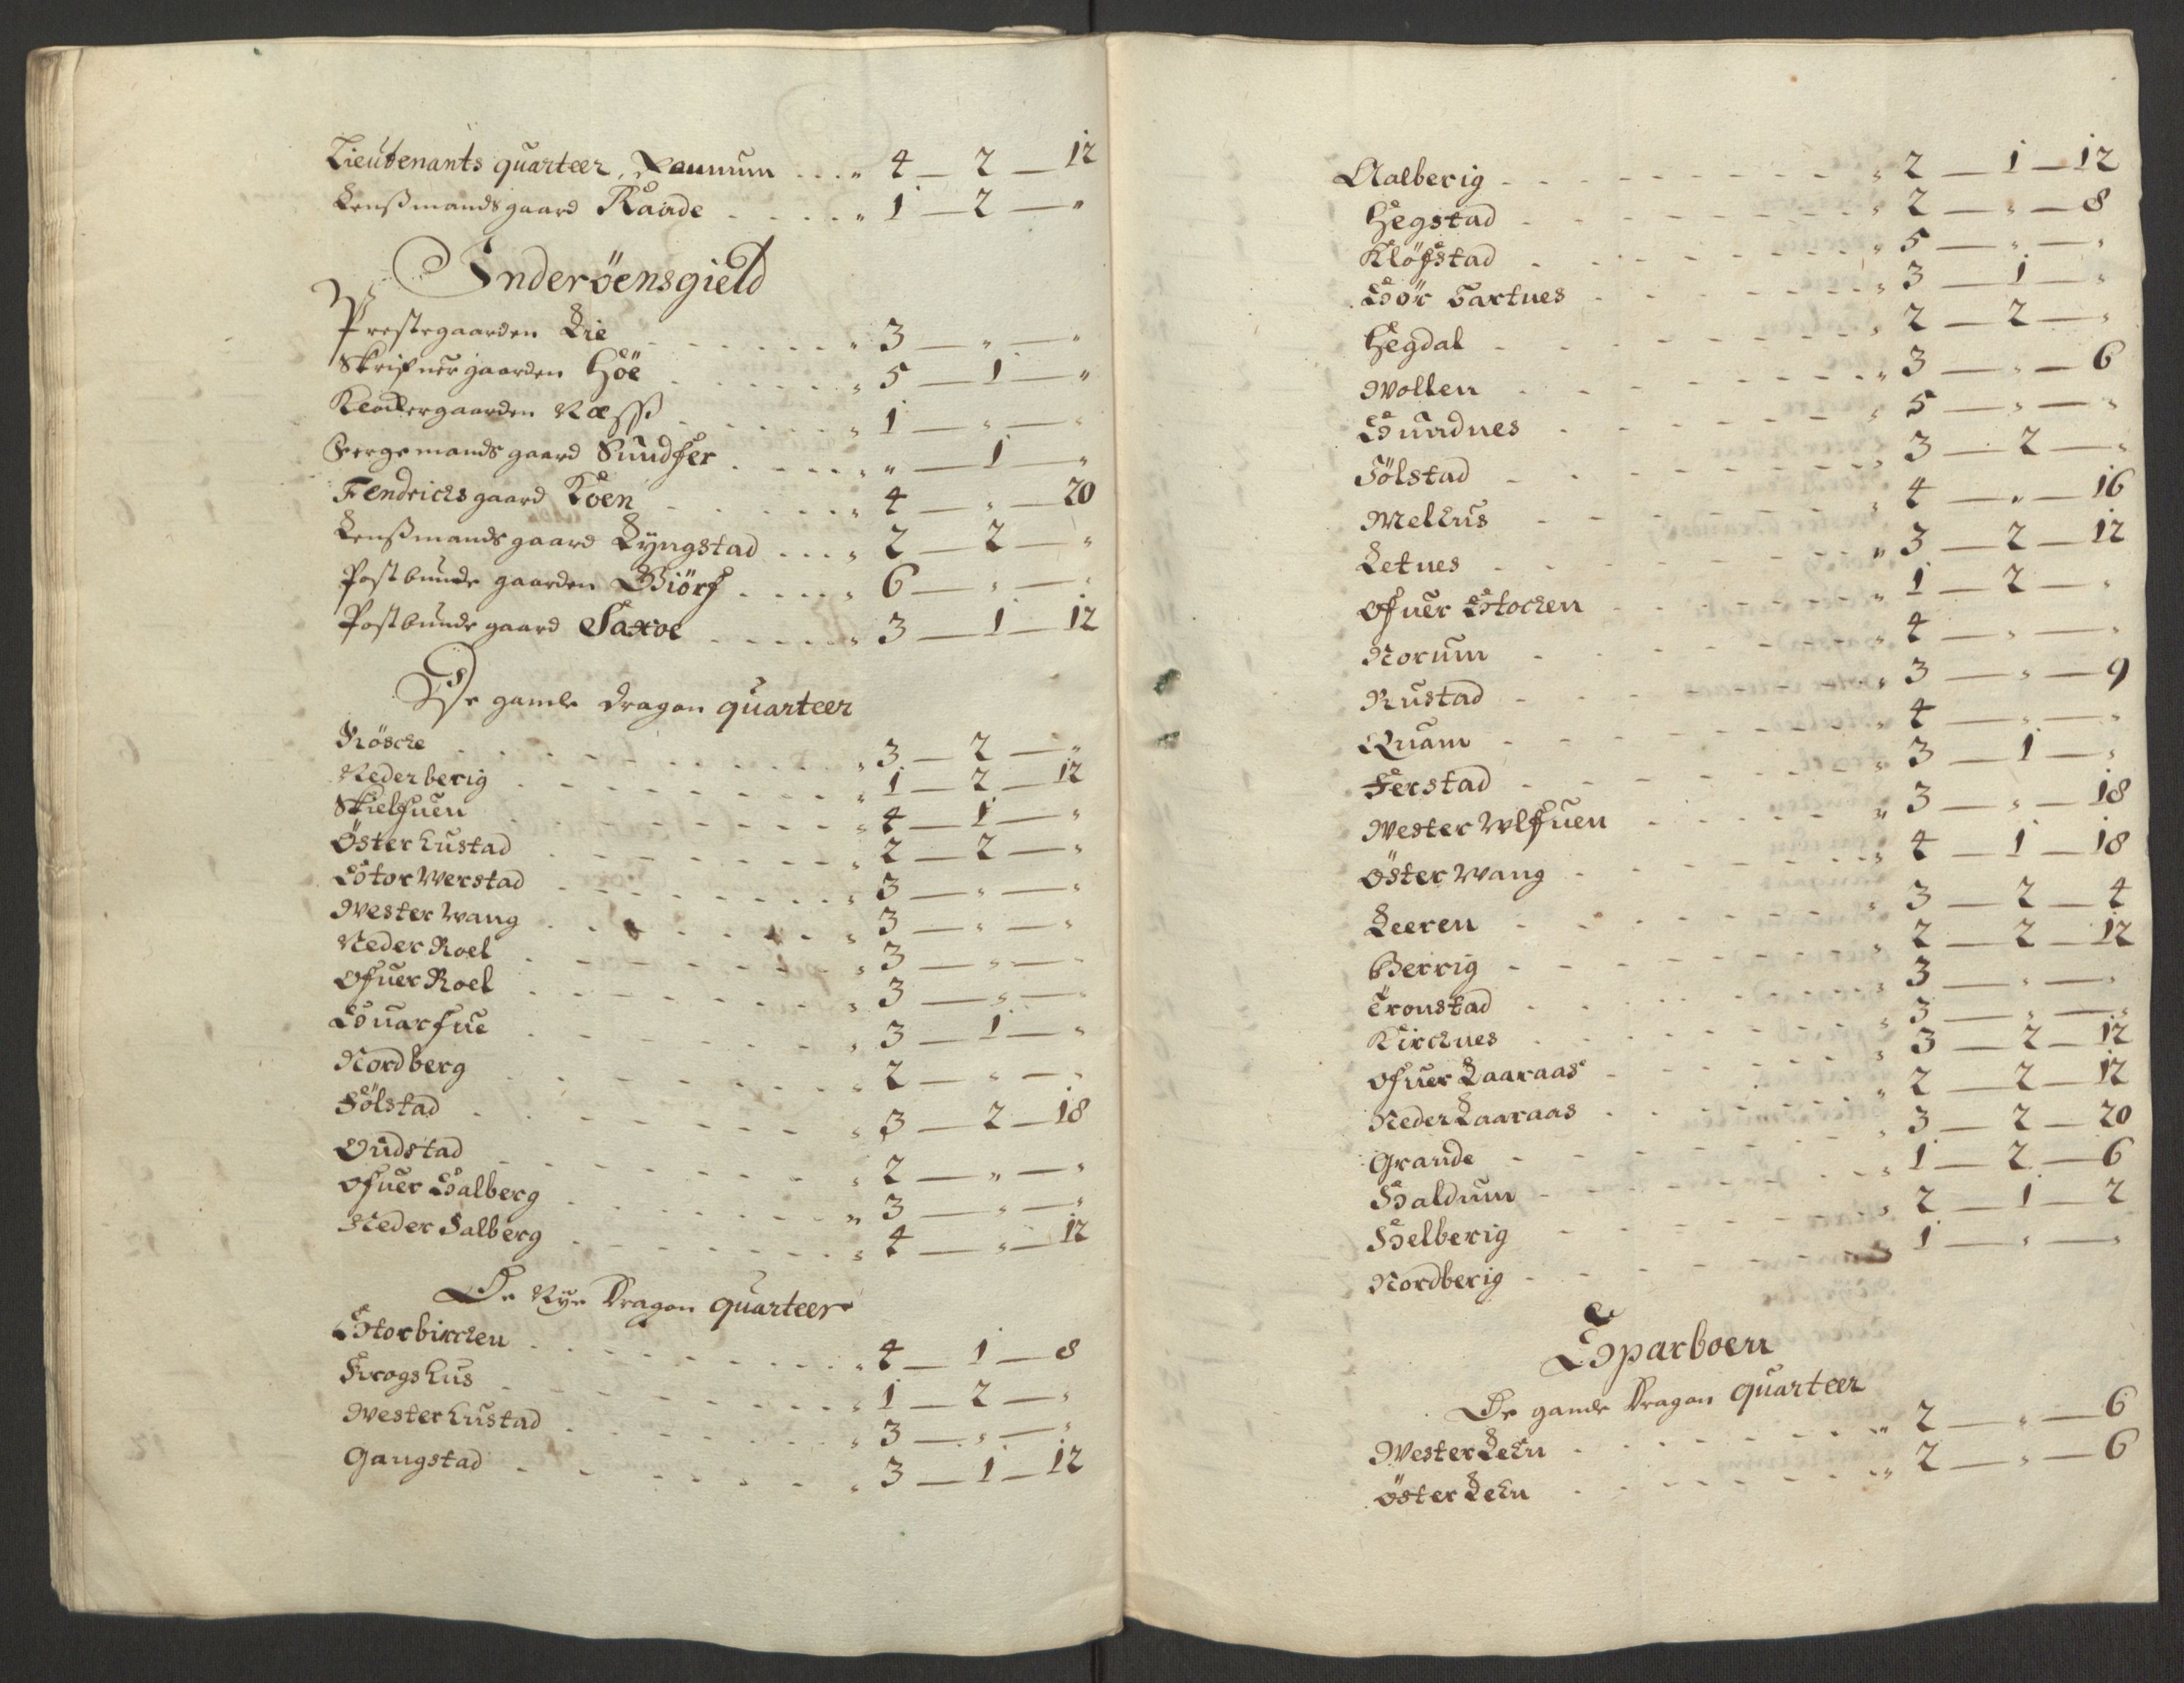 Lieutenants quarteer, Rammum . . . „ 4 — 2 — 12
Lensßmands gaard Raade . . . . „ 1 — 2 — „
Inderöensgield
Prestegaarden Lie . . . . „ 3 — „ — „
Skrifuergaarden Höe . . . . „ 5 — 1 — „
Klockergaarden Næss . . . . „ 1 — „ — „
Fergemands gaard Sundfær . . . . „ „ — 1 — „
Fendrichs gaard Koen . . . . „ 4 — „ — 20
Lensßmands gaard Lyngstad . . . „ 2 — 2 — „
Postbunde gaarden Biörf . . . . „ 6 — „ — „
Postbunde gaard Saxoe . . . . „ 3 — 1 — 12
De gamle dragon quarteer
Rösche . . . . „ 3 — 2 — „
Neder berig . . . . „ 1 — 2 — 12
Skielfuen . . . . „ 4 — 1 — „
Öster hustad . . . . „ 2 — 2 — „
Stor Werstad . . . . „ 3 — „ — „
Wester Wang . . . . „ 3 — „ — „
Neder Roel . . . . „ 3 — „ — „
Ofuer Roel . . . . „ 3 — „ — „
Suarfue . . . . „ 3 — 1 — „
Nordberg . . . . „ 2 — „ — „
Fölstad . . . . „ 3 — 2 — 18
Undstad . . . . „ 2 — „ — „
Ofuer Salberg . . . . „ 3 — „ — „
Neder Salberg . . . . „ 4 — „ — 12
De Nye Dragon quarteer
Storbirchen . . . . „ 4 — 1 — 8
Frogshus . . . . „ 1 — 2 — „
Wester hustad . . . . „ 3 — „ — „
Gangstad . . . . „ 3 — 1 — 12
Aalberig . . . . „ 2 — 1 — 12
Hegstad . . . . „ 2 — „ — 8
Klöfstad . . . . „ 5 — „ — „
Sör Sartnes . . . . „ 3 — 1 — „
Hegdal . . . . „ 2 — 2 — „
Wollen . . . . „ 3 — „ — 6
Sundnes . . . . „ 5 — „ — „
Fölstad . . . . „ 3 — 2 — „
Melhus . . . . „ 4 — „ — 16
Letnes . . . . „ 3 — 2 — 12
Ofuer Stochen . . . . „ 1 — 2 — „
Norum . . . . „ 4 — „ — „
Rustad . . . . „ 3 — „ — 9
Quam . . . . „ 4 — „ — „
Ferstad . . . . „ 3 — 1 — „
Wester Wlfuen . . . . „ 3 — „ — 18
Öster Wang . . . . „ 4 — 1 — 18
Leeren . . . . „ 3 — 2 — 4
Berrig . . . . „ 2 — 2 — 12
Tronstad . . . . „ 3 — „ — „
Kirchnes . . . . „ 3 — „ — „
Ofuer Laaraas . . . . „ 3 — 2 — 12
Neder Laaraas . . . . „ 2 — 2 — 12
Grande . . . . „ 3 — 2 — 20
Haldum . . . . „ 1 — 2 — 6
Helberig . . . . „ 2 — 1 — 2
Nordberig . . . . „ 1 — „ — „
Sparboen
De gamle Dragon quarteer
Wester Lehn . . . . „ 2 — „ — 6
Öster Lehn . . . . „ 2 — „ — 6